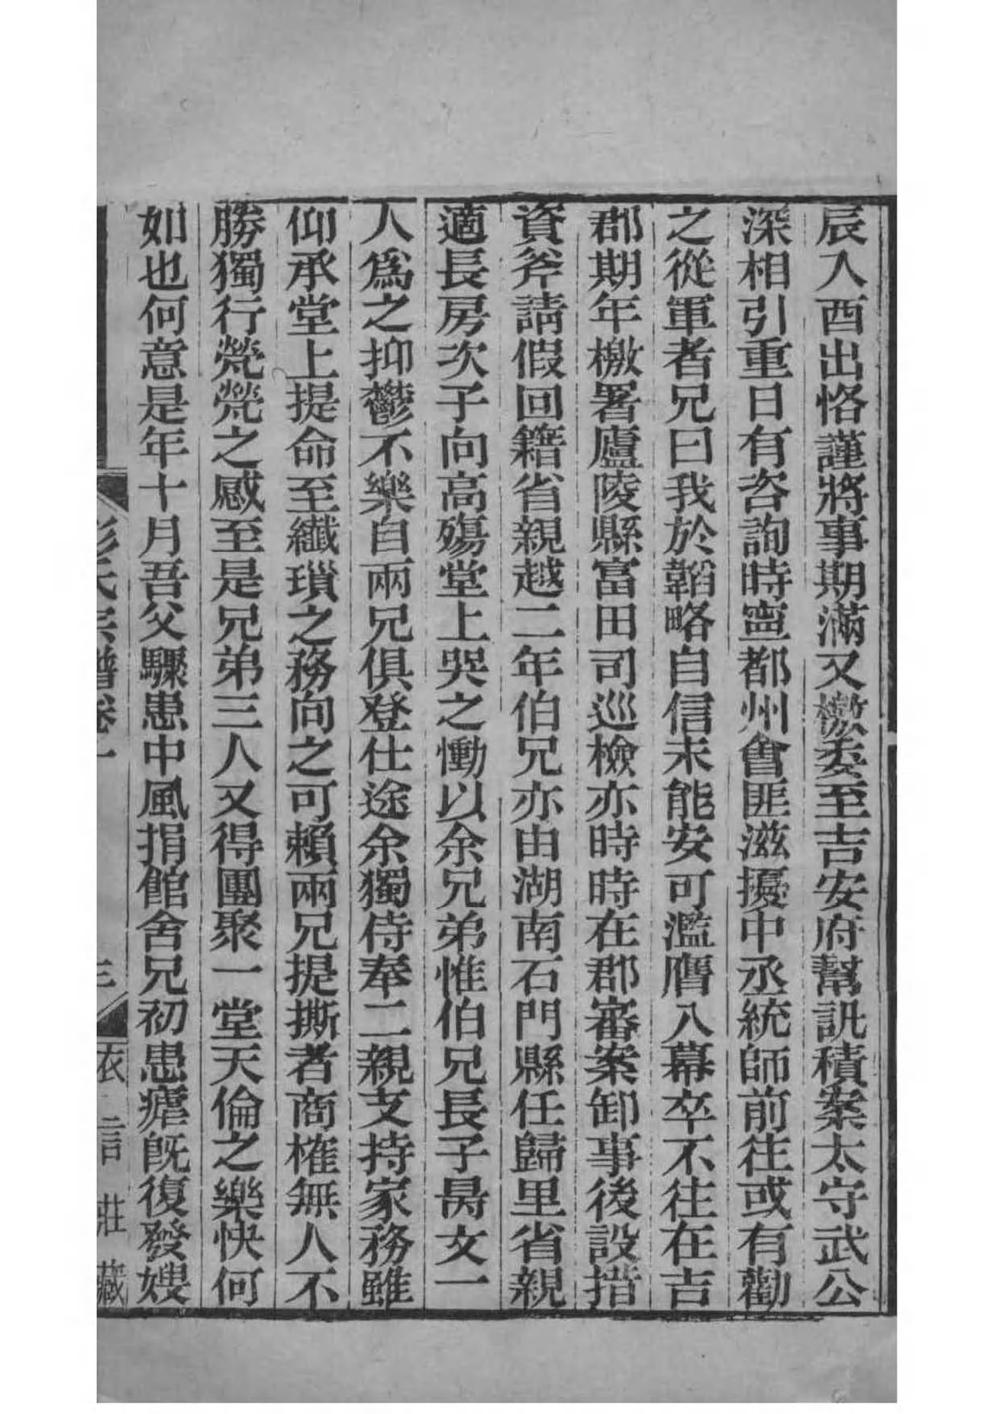 辰入酉出恪謹將事期滿又檄委至吉安府幫訊積案太守武公
深相引重日有咨詢時寧都州會匪滋擾中丞統師前往或有勸
之從軍者兄曰我於韜略自信未能安可濫膺入幕卒不往在吉
郡期年檄署廬陵縣富田司巡檢亦時時在郡審案卸事後設措
資斧請假回籍省親越二年伯兄亦由湖南石門縣任歸里省親
適長房次子向高殤堂上哭之慟以余兄弟惟伯兄長子昺文一
人爲之抑鬱不樂自兩兄俱登仕途余獨侍奉二親支持家務雖
仰承堂上提命至纖瑣之務向之可賴兩兄提撕者商榷無人不
勝獨行煢煢之慼至是兄弟三人又得團聚一堂天倫之樂快何
如也何意是年十月吾父驟患中風捐館舍兄初患瘧旣復發嫂
彭氏宗譜卷一 三 衣言莊藏